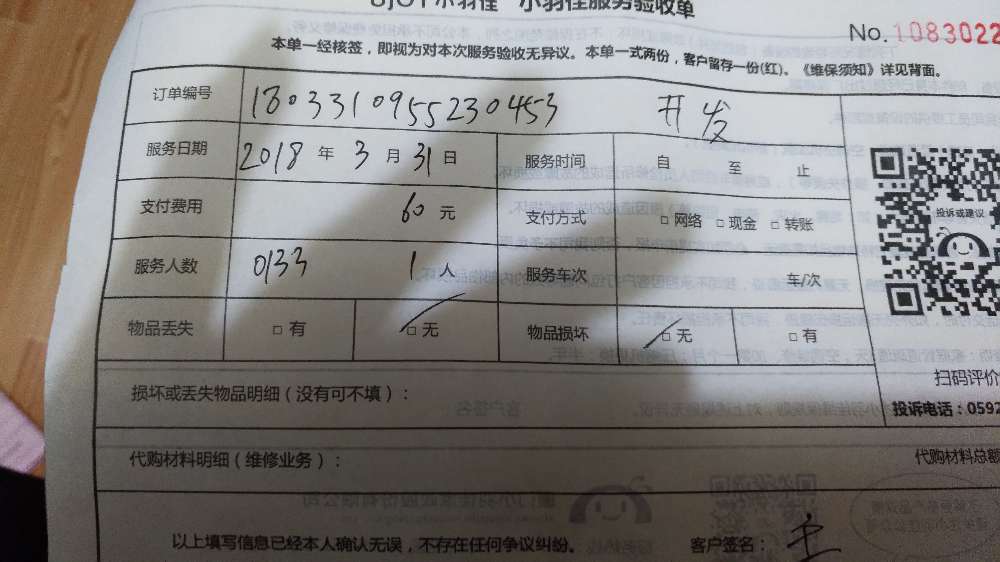 小羽佳 小羽佳服务验收单
No. 1083022
本单一经核签，即视为对本次服务验收无异议。本单一式两份，客户留存一份(红)。《维保须知》详见背面。
订单编号 180331095523 0453 开发
服务日期 2018 年 3 月 31 日 服务时间 自 至 止
支付费用 60 元 支付方式 □ 网络 □ 现金 □ 转账
服务人数 0133 1 人 服务车次 车/次
物品丢失 □ 有 □ 无 物品损坏 □ 无 □ 有
投诉或建议
扫码评价
投诉电话：0592
损坏或丢失物品明细（没有可不填）：
代购材料明细（维修业务）： 代购材料总额
以上填写信息已经本人确认无误，不存在任何争议纠纷。 客户签名：